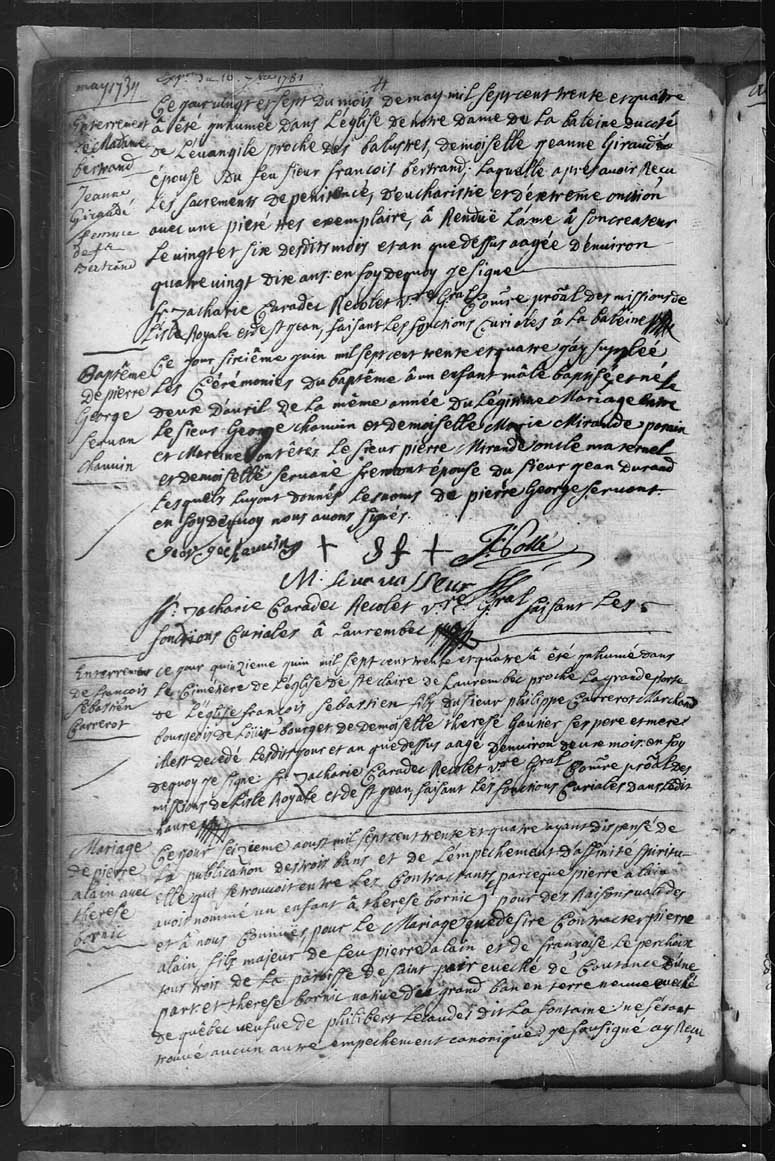 may 1734
Ce jour vingt et sept du mois de may mil sept cent trente et quatre
Enterrement
de Madame
bertrand
Jeanne
Giraudé
femme
de fr
Bertrand
a été inhumée dans L'église de notre dame de La baleine du coté
de L'evangile proche des balustres, demoiselle jeanne Giraude
epouse du feu sieur francois bertrand. Laquelle apres avoir Reçu
Les sacrements de penitence, d'eucharistie et d'extreme onction
avec une pieté tres exemplaire, à Rendue L'ame à son createur
Le vingt et six desdits mois et an que dessus aagée d'environ
quatre vingt dix ans: en foy de quoy je signe
fr. Zacharie Caradec Recolet vre Gral Comre pröal des missions de
L'isle Royale et de st jean, faisant Les fonctions Curiales à La baleine
Baptême
de pierre
George
servan
chauvin
Ce jour sixiême juin mil sept cent trente et quatre j'ay supplée
Les Cérémonies du baptême à un enfant mâle baptisé et né le
deux d'avril de La même année du Légitime Mariage entre
Le sieur George chauvin et demoiselle Marie Mirande parain
et Maraine ont êtés Le sieur pierre Mirande oncle maternel
et demoiselle servane fremont épouse du sieur jean durand
Lesquels Luy ont donnés Les noms de pierre George servant.
en foy de quoy nous avons signés.
George chauvin
M. Levavasseur
fr. Zacharie Caradec Recolet vre Gral faisant Les
fonctions Curiales à Laurembec
Enterrement
de francois
sébastien
Carrerot
Ce jour quinzieme juin mil sept cent trente et quatre à êté inhumé dans
Le Cimetiere de L'église de ste claire de Laurembec proche La grande porte
de L'église francois sebastien fils du sieur philippe Carrerot Marchand
bourgeois de Louisbourg et de Demoiselle therese Gautier ses pere et meres
il est decedé Lesdits jour et an que dessus aagé d'environ deux mois: en foy
de quoy je signe fr. Zacharie Caradec Recolet vre Gral Comre pröal des
missions de L'isle Royale et de st jean, faisant Les fonctions Curiales dans Ledit
havre
Mariage
de pierre
alain avec
therese
bornic
Ce jour seizieme aoust mil sept cent trente et quatre ayant dispensé de
La publication des trois bans et de L'empechement d'affinité spiritu-
elle qui se trouvoit entre Les Contractants parceque pierre alain
avoit nommé un enfant à therese bornic, pour des Raisons valides
et à nous Connues, pour Le Mariage que desire Contracter pierre
alain fils majeur de feu pierre alain et de françoise Le perchoix
tous trois de La paroisse de saint pair evêché de Coutance d'une
part et therese bornic native du grand ban en terre neuve evêché
de québec veufve de philibert Lecaudes dit La fontaine ne s'étant
trouvé aucun autre empechement canonique, je soussigné ay Reçu